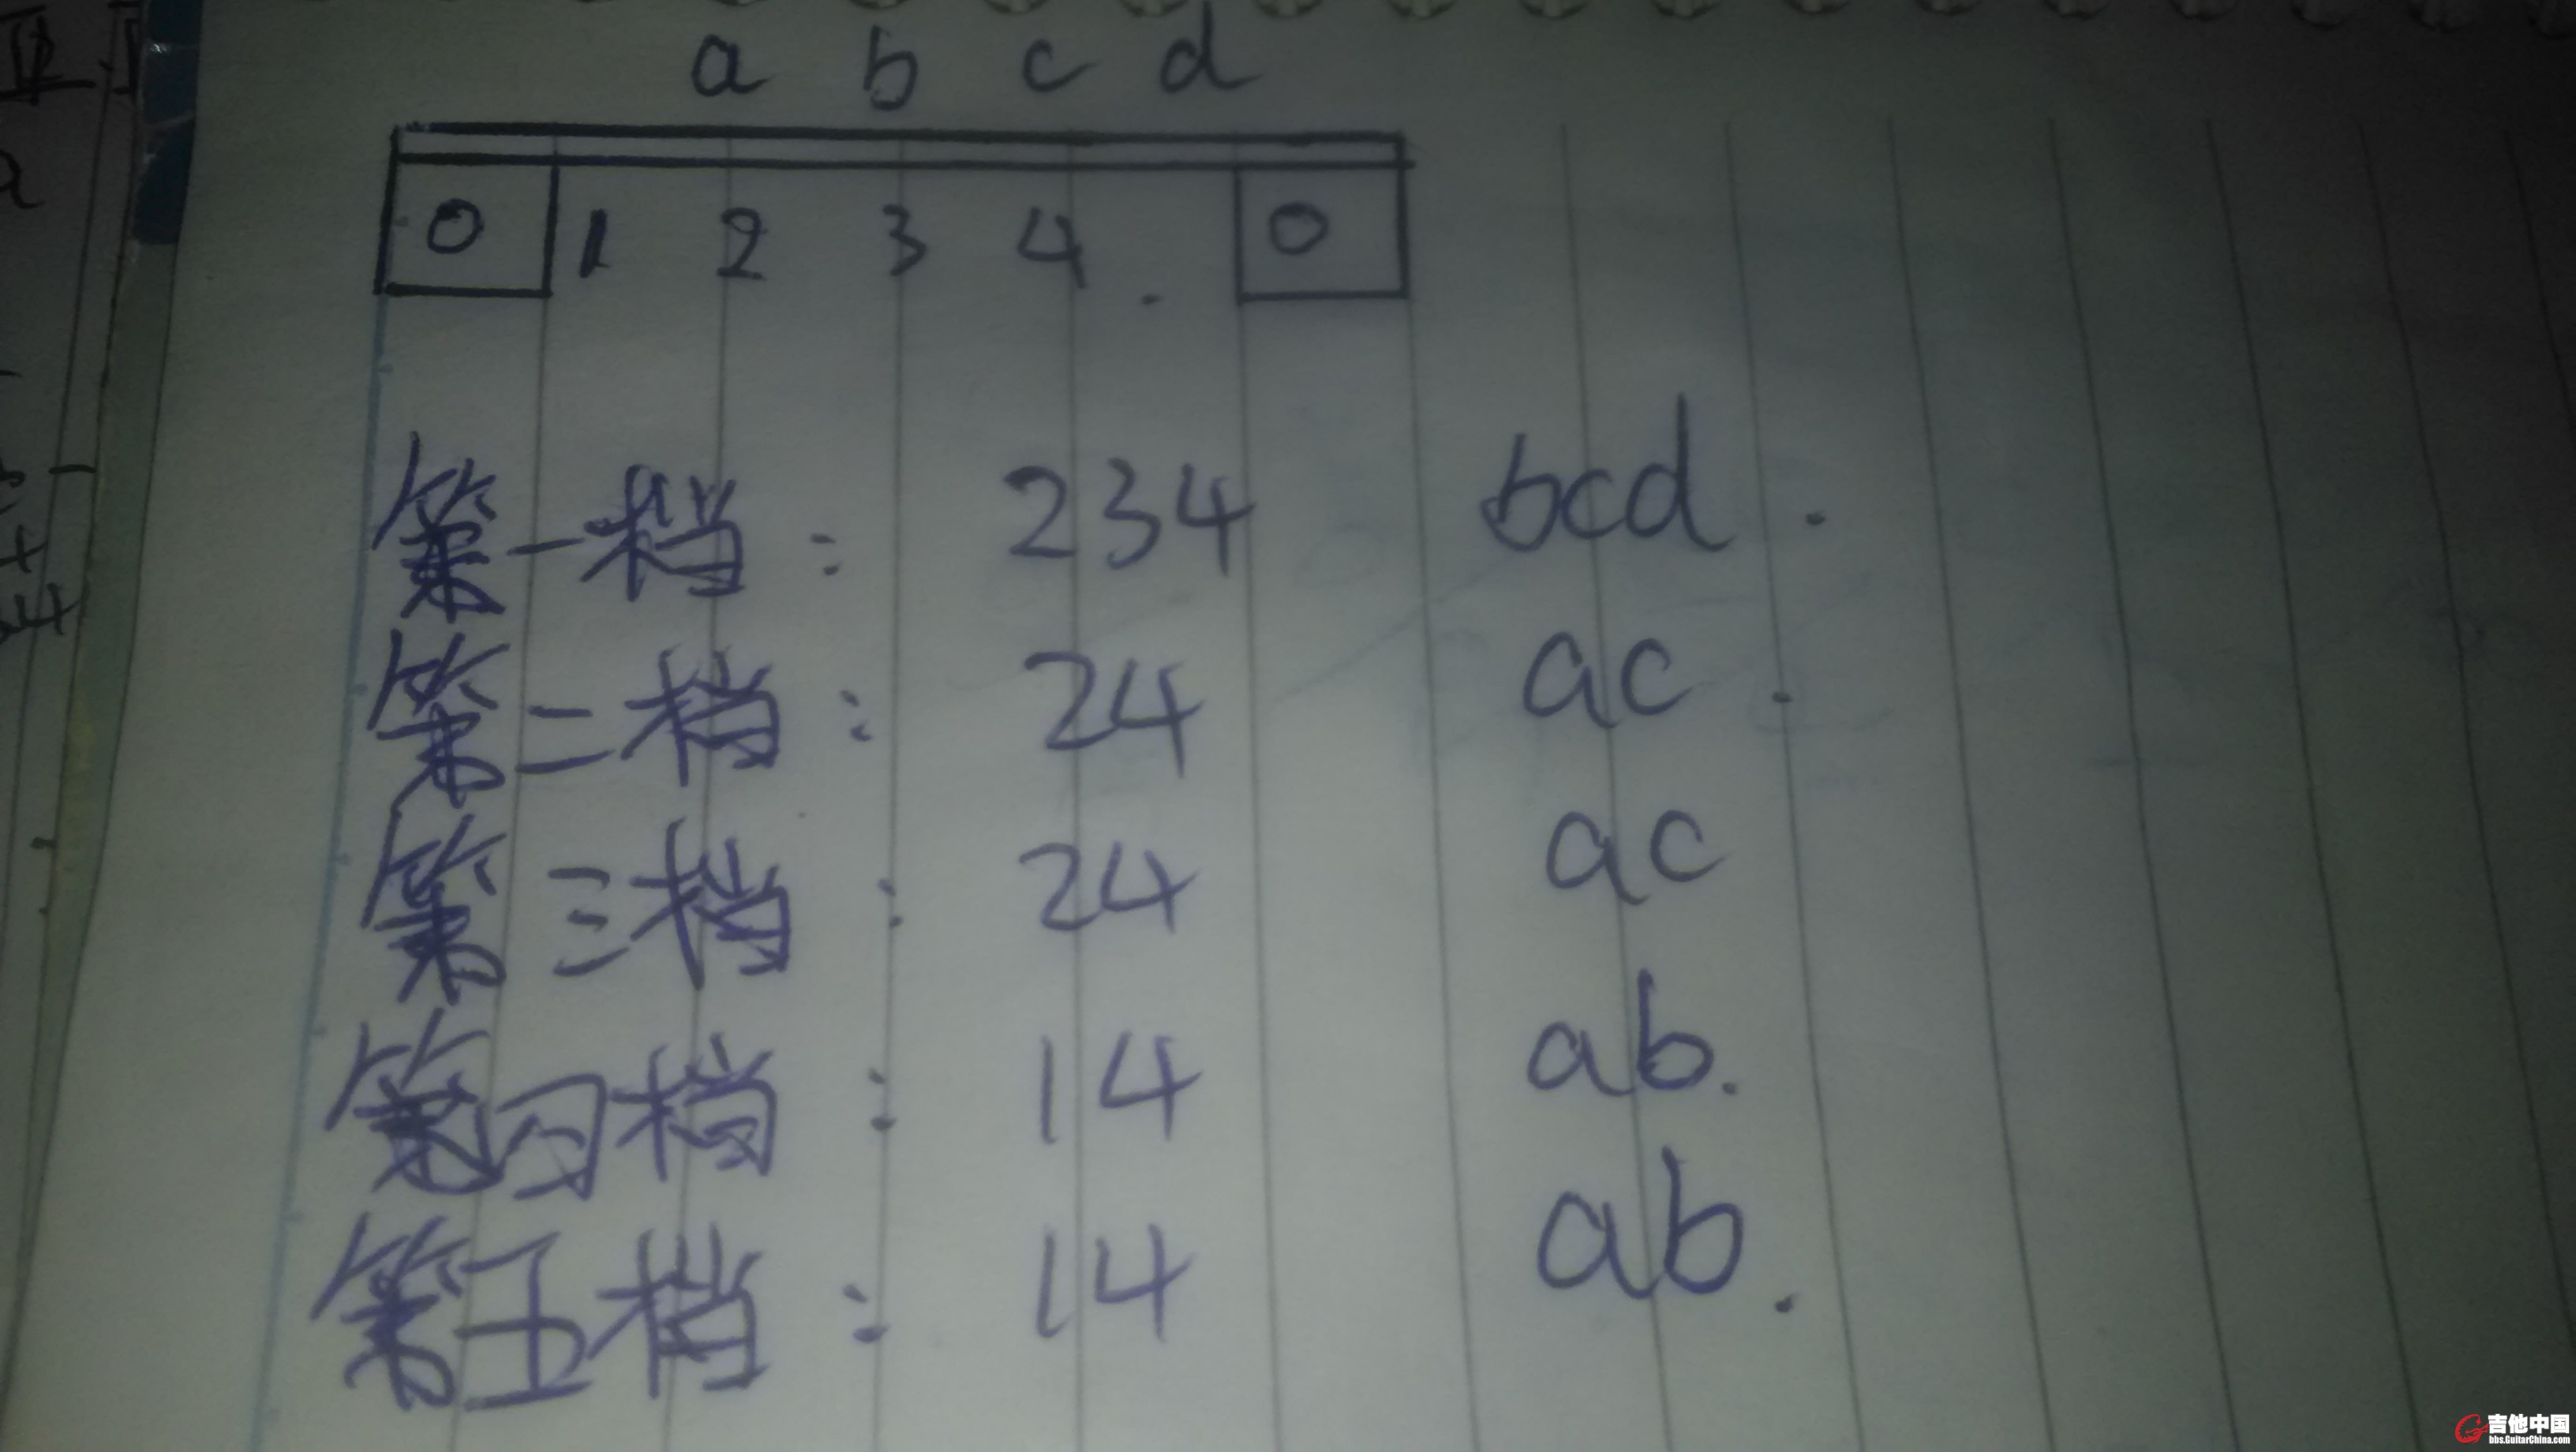 a b c d
0 1 2 3 4 . 0
第一档: 234 bcd.
第二档: 24 ac.
第三档: 24 ac
第四档: 14 ab.
第五档: 14 ab.
吉他中国
bbs.GuitarChina.com